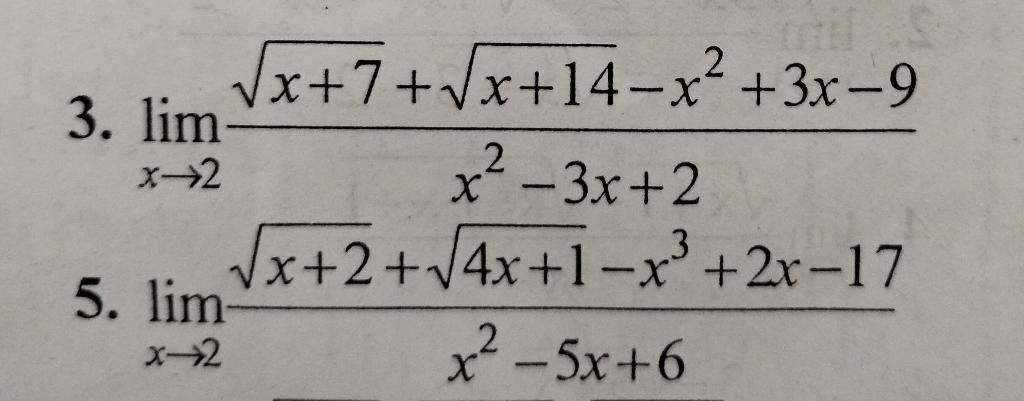 3. lim x→2 (√(x+7) + √(x+14) − x² + 3x − 9) / (x² − 3x + 2)
5. lim x→2 (√(x+2) + √(4x+1) − x³ + 2x − 17) / (x² − 5x + 6)